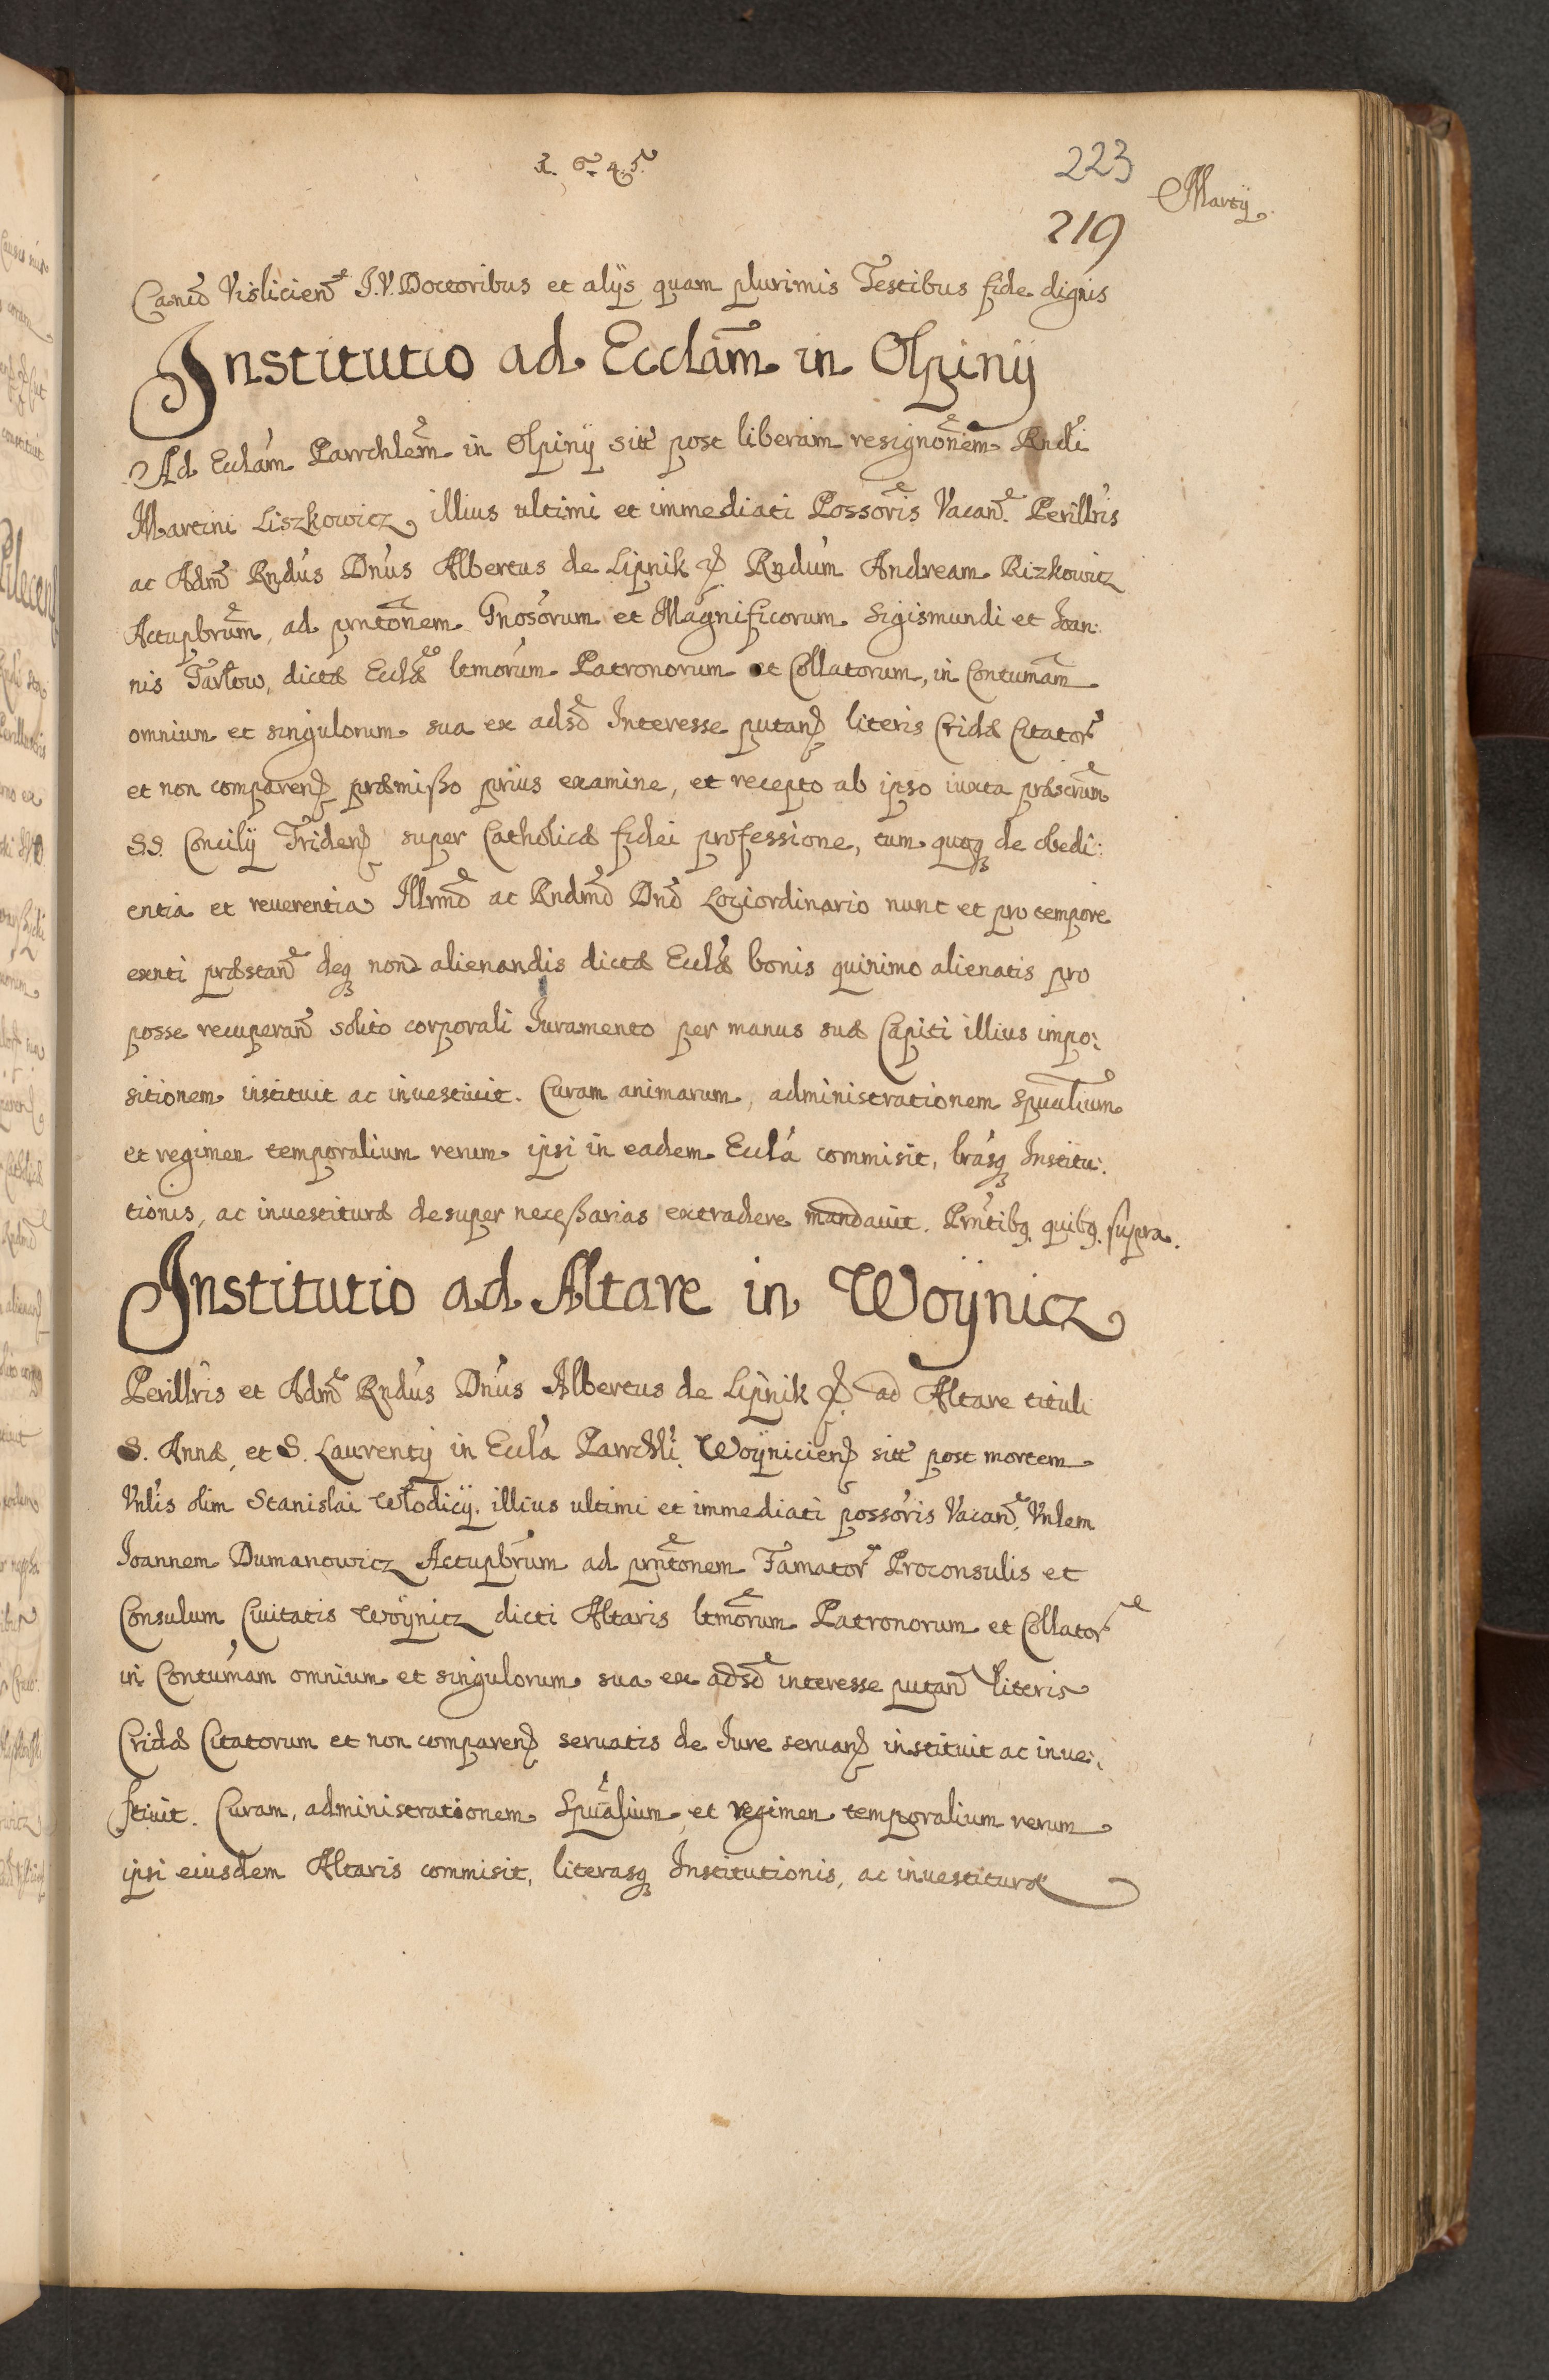 1. 6. 4. 5.
223
219
Martij.
Canco Visliciens J.V. Doctoribus et alijs quam plurimis Testibus fide dignis
Institutio ad Ecclam in Olpinÿ
Ad Ecclam Parrchlem in Olpinÿ sitt post liberam resignonem Rndi
Martini Liszkowicz illius ultimi et immediati Possoris Vacan. Perillris
ac Adm Rndus Dnus Albertus de Lipnik p Rndum Andream Rizkowicz
Actupbrum, ad prntonem Gnosorum et Magnificorum Sigismundi et Joan:
nis Tarłow, dictæ Ecclæ ltmorum Patronorum et Collatorum, in Contumam
omnium et singulorum sua ex adso Interesse putan literis Cridæ Citator
et non comparen præmisso prius examine, et recepto ab ipso iuxta præscrum
S.S. Concilij Triden super Catholicæ fidei professione, tum quoq de obedi:
entia et reuerentia Illrmo ac Rndmo Dno Lociordinario nunc et pro tempore
exnti præstan deq non alienandis dictæ Ecclæ bonis quinimo alienatis pro
posse recuperan solito corporali Juramento per manus suæ Capiti illius impo:
sitionem instituit ac inuestiuit. Curam animarum, administrationem Spualium
et regimen temporalium rerum ipsi in eadem Eccla commisit, lrasq Institu:
tionis, ac inuestituræ desuper necessarias extradere mandauit. Prntibq quibq supra.
Institutio ad Altare in Woÿnicz
Perillris et Adm Rndus Dnus Albertus de Lipnik p ad Altare tituli
S. Annæ, et S. Laurentij in Eccla Parrchli Woÿnicien sitt post mortem
Vnlis olim Stanislai Włodicij illius ultimi et immediati possoris Vacan. Vnlem
Joannem Dumanowicz Actupbrum ad prntonem Famator Proconsulis et
Consulum Ciuitatis Woÿnicz dicti Altaris ltmorum Patronorum et Collator
in Contumam omnium et singulorum sua ex adso interesse putan literis
Cridæ Citatorum et non comparen seruatis de Jure seruan instituit ac inue:
stiuit. Curam, administrationem Spualium, et regimen temporalium rerum
ipsi eiusdem Altaris commisit, literasq Institutionis, ac inuestituræ